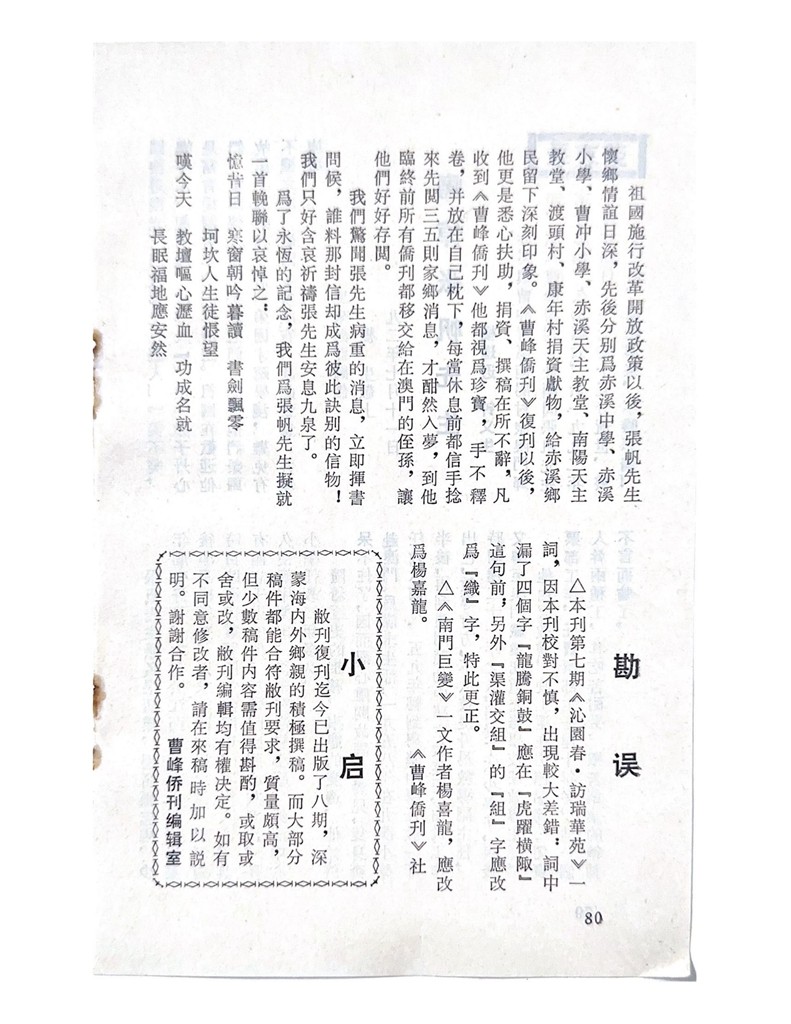 祖國施行改革開放政策以後，張帆先生
懷鄉情誼日深，先後分別爲赤溪中學、赤溪
小學、曹冲小學、赤溪天主教堂、南陽天主
教堂、渡頭村、康年村捐資獻物，給赤溪鄉
民留下深刻印象。《曹峰僑刊》復刊以後，
他更是悉心扶助，捐資、撰稿在所不辭，凡
收到《曹峰僑刊》他都視爲珍寶，手不釋
卷，并放在自己枕下，每當休息前都信手捻
來先閱三五則家鄉消息，才酣然入夢，到他
臨終前所有僑刊都移交給在澳門的侄孫，讓
他們好好存閱。
我們驚聞張先生病重的消息，立即揮書
問候，誰料那封信却成爲彼此訣別的信物！
我們只好含哀祈禱張先生安息九泉了。
爲了永恆的記念，我們爲張帆先生擬就
一首輓聯以哀悼之：
憶昔日　寒窗朝吟暮讀　書劍飄零
坷坎人生徒恨望
嘆今天　教壇嘔心瀝血　功成名就
長眠福地應安然
勘误
△本刊第七期《沁園春·訪瑞華苑》一
詞，因本刊校對不慎，出現較大差錯：詞中
漏了四個字『龍騰銅鼓』應在『虎躍横陬』
這句前，另外『渠灌交組』的『組』字應改
爲『織』字，特此更正。
△《南門巨變》一文作者楊喜龍，應改
爲楊嘉龍。
《曹峰僑刊》社
小启
敝刊復刊迄今已出版了八期，深
蒙海内外鄉親的積極撰稿。而大部分
稿件都能合符敝刊要求，質量頗高，
但少數稿件内容需值得斟酌，或取或
舍或改，敝刊編輯均有權决定。如有
不同意修改者，請在來稿時加以説
明。謝謝合作。
曹峰侨刊编辑室
80